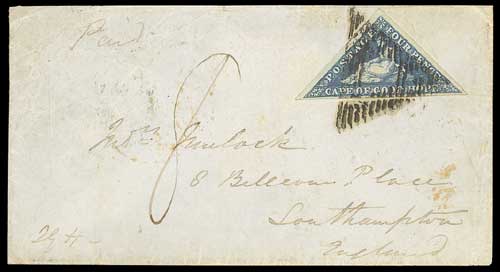 Paid
POSTAGE FOUR PENCE
CAPE OF GOOD HOPE
8
Mrs Mulock
8 Bellevue Place
Southampton
England